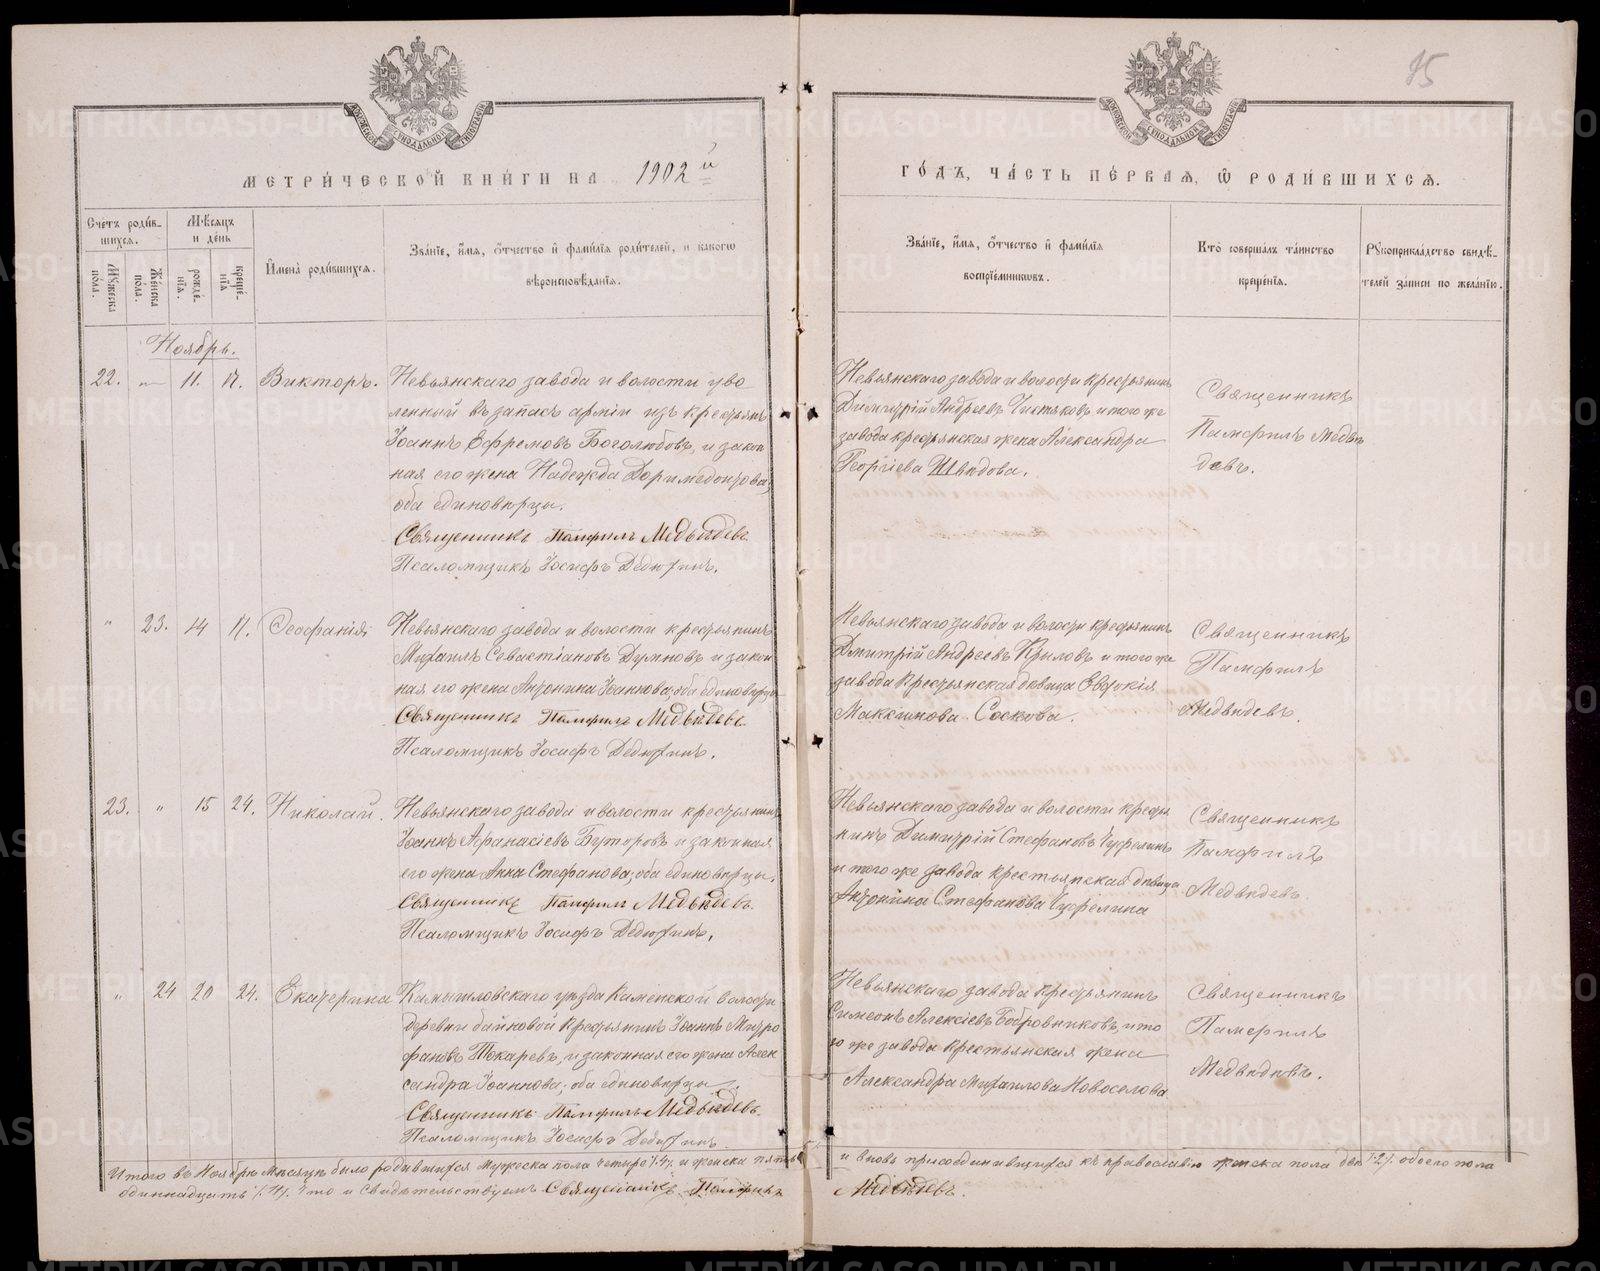 МЕТРИ́ЧЕСКОЙ КНИ́ГИ НА 1902й
ГО́ДЪ, ЧА́СТЬ ПЕ́РВАЯ, Ѽ РОДИ́ВШИХСЯ.
75
Счетъ роди́в-
шихся.
Мѣсяцъ
и де́нь
Мꙋжеска по́ла.
Же́нска по́ла.
рожде́нїя.
креще́нїя
И҆мена̀ роди́вшихся.
Зва́нїе, и҆́мя, ѻ҆́тчество и҆ фами́лїя роди́телей, и какогѡ
вѣроисповѣ́данїя.
Зва́нїе, и҆́мя, ѻ҆́тчество и҆ фами́лїя
воспрїе́мниковъ.
Кто̀ соверша́лъ та́инство
креще́нїя.
Рꙋкоприкла́дство свидѣ́-
телей за́писи по жела́нїю.
Ноябрь.
22. „ 11. 17. Викторъ.
Невьянскаго завода и волости уво
ленный въ запасъ арміи изъ крестьянъ
Іоаннъ Ефремовъ Боголюбовъ, и закон
ная его жена Надежда Доримедонтова,
оба единовѣрцы.
Священникъ Памфилъ Медвѣдевъ.
Псаломщикъ Іосифъ Дедюхинъ.
Невьянскаго завода и волости крестьянинъ
Димитрій Андреевъ Чистяковъ и того же
завода крестьянская жена Александра
Георгіева Шведова.
Священникъ
Памфилъ Медвѣ
девъ.
„ 23. 14 17. Ѳеофанія
Невьянскаго завода и волости крестьянинъ
Михаилъ Севастіановъ Думновъ и закон
ная его жена Антонина Іоаннова, оба единовѣрцы
Священникъ Памфилъ Медвѣдевъ.
Псаломщикъ Іосифъ Дедюхинъ.
Невьянскаго завода и волости крестьянинъ
Дмитрій Андреевъ Крыловъ и того же
завода крестьянская дѣвица Евдокія
Максимова Соскова.
Священникъ
Памфилъ
Медвѣдевъ.
23. „ 15 24. Николай.
Невьянскаго завода и волости крестьянинъ
Іоаннъ Афанасіевъ Буторовъ и законная
его жена Анна Стефанова, оба единовѣрцы.
Священникъ Памфилъ Медвѣдевъ.
Псаломщикъ Іосифъ Дедюхинъ.
Невьянскаго завода и волости крестья
нинъ Димитрій Стефановъ
и того же завода крестьянская дѣвица
Антонина Стефанова
Священникъ
Памфилъ
Медвѣдевъ.
„ 24 20 24. Екатерина
Камышловскаго уѣзда Каменской волости
деревни Байновой крестьянинъ Іоаннъ Митро
фановъ Токаревъ, и законная его жена Алек
сандра Іоаннова, оба единовѣрцы.
Священникъ Памфилъ Медвѣдевъ.
Псаломщикъ Іосифъ Дедюхинъ.
Невьянскаго завода крестьянинъ
Симеонъ Алексіевъ Бобровниковъ, и то
го же завода крестьянская жена
Александра Михаилова Новоселова
Священникъ
Памфилъ
Медвѣдевъ.
Итого въ Ноябрѣ мѣсяцѣ было родившихся мужеска пола четыре /.4./ и женска пять /.5./ и вновь присоединившихся къ православію женска пола двѣ /.2./. обоего пола
одиннадцать /.11./. Что и свидѣтельствуемъ Священникъ Памфилъ Медвѣдевъ.